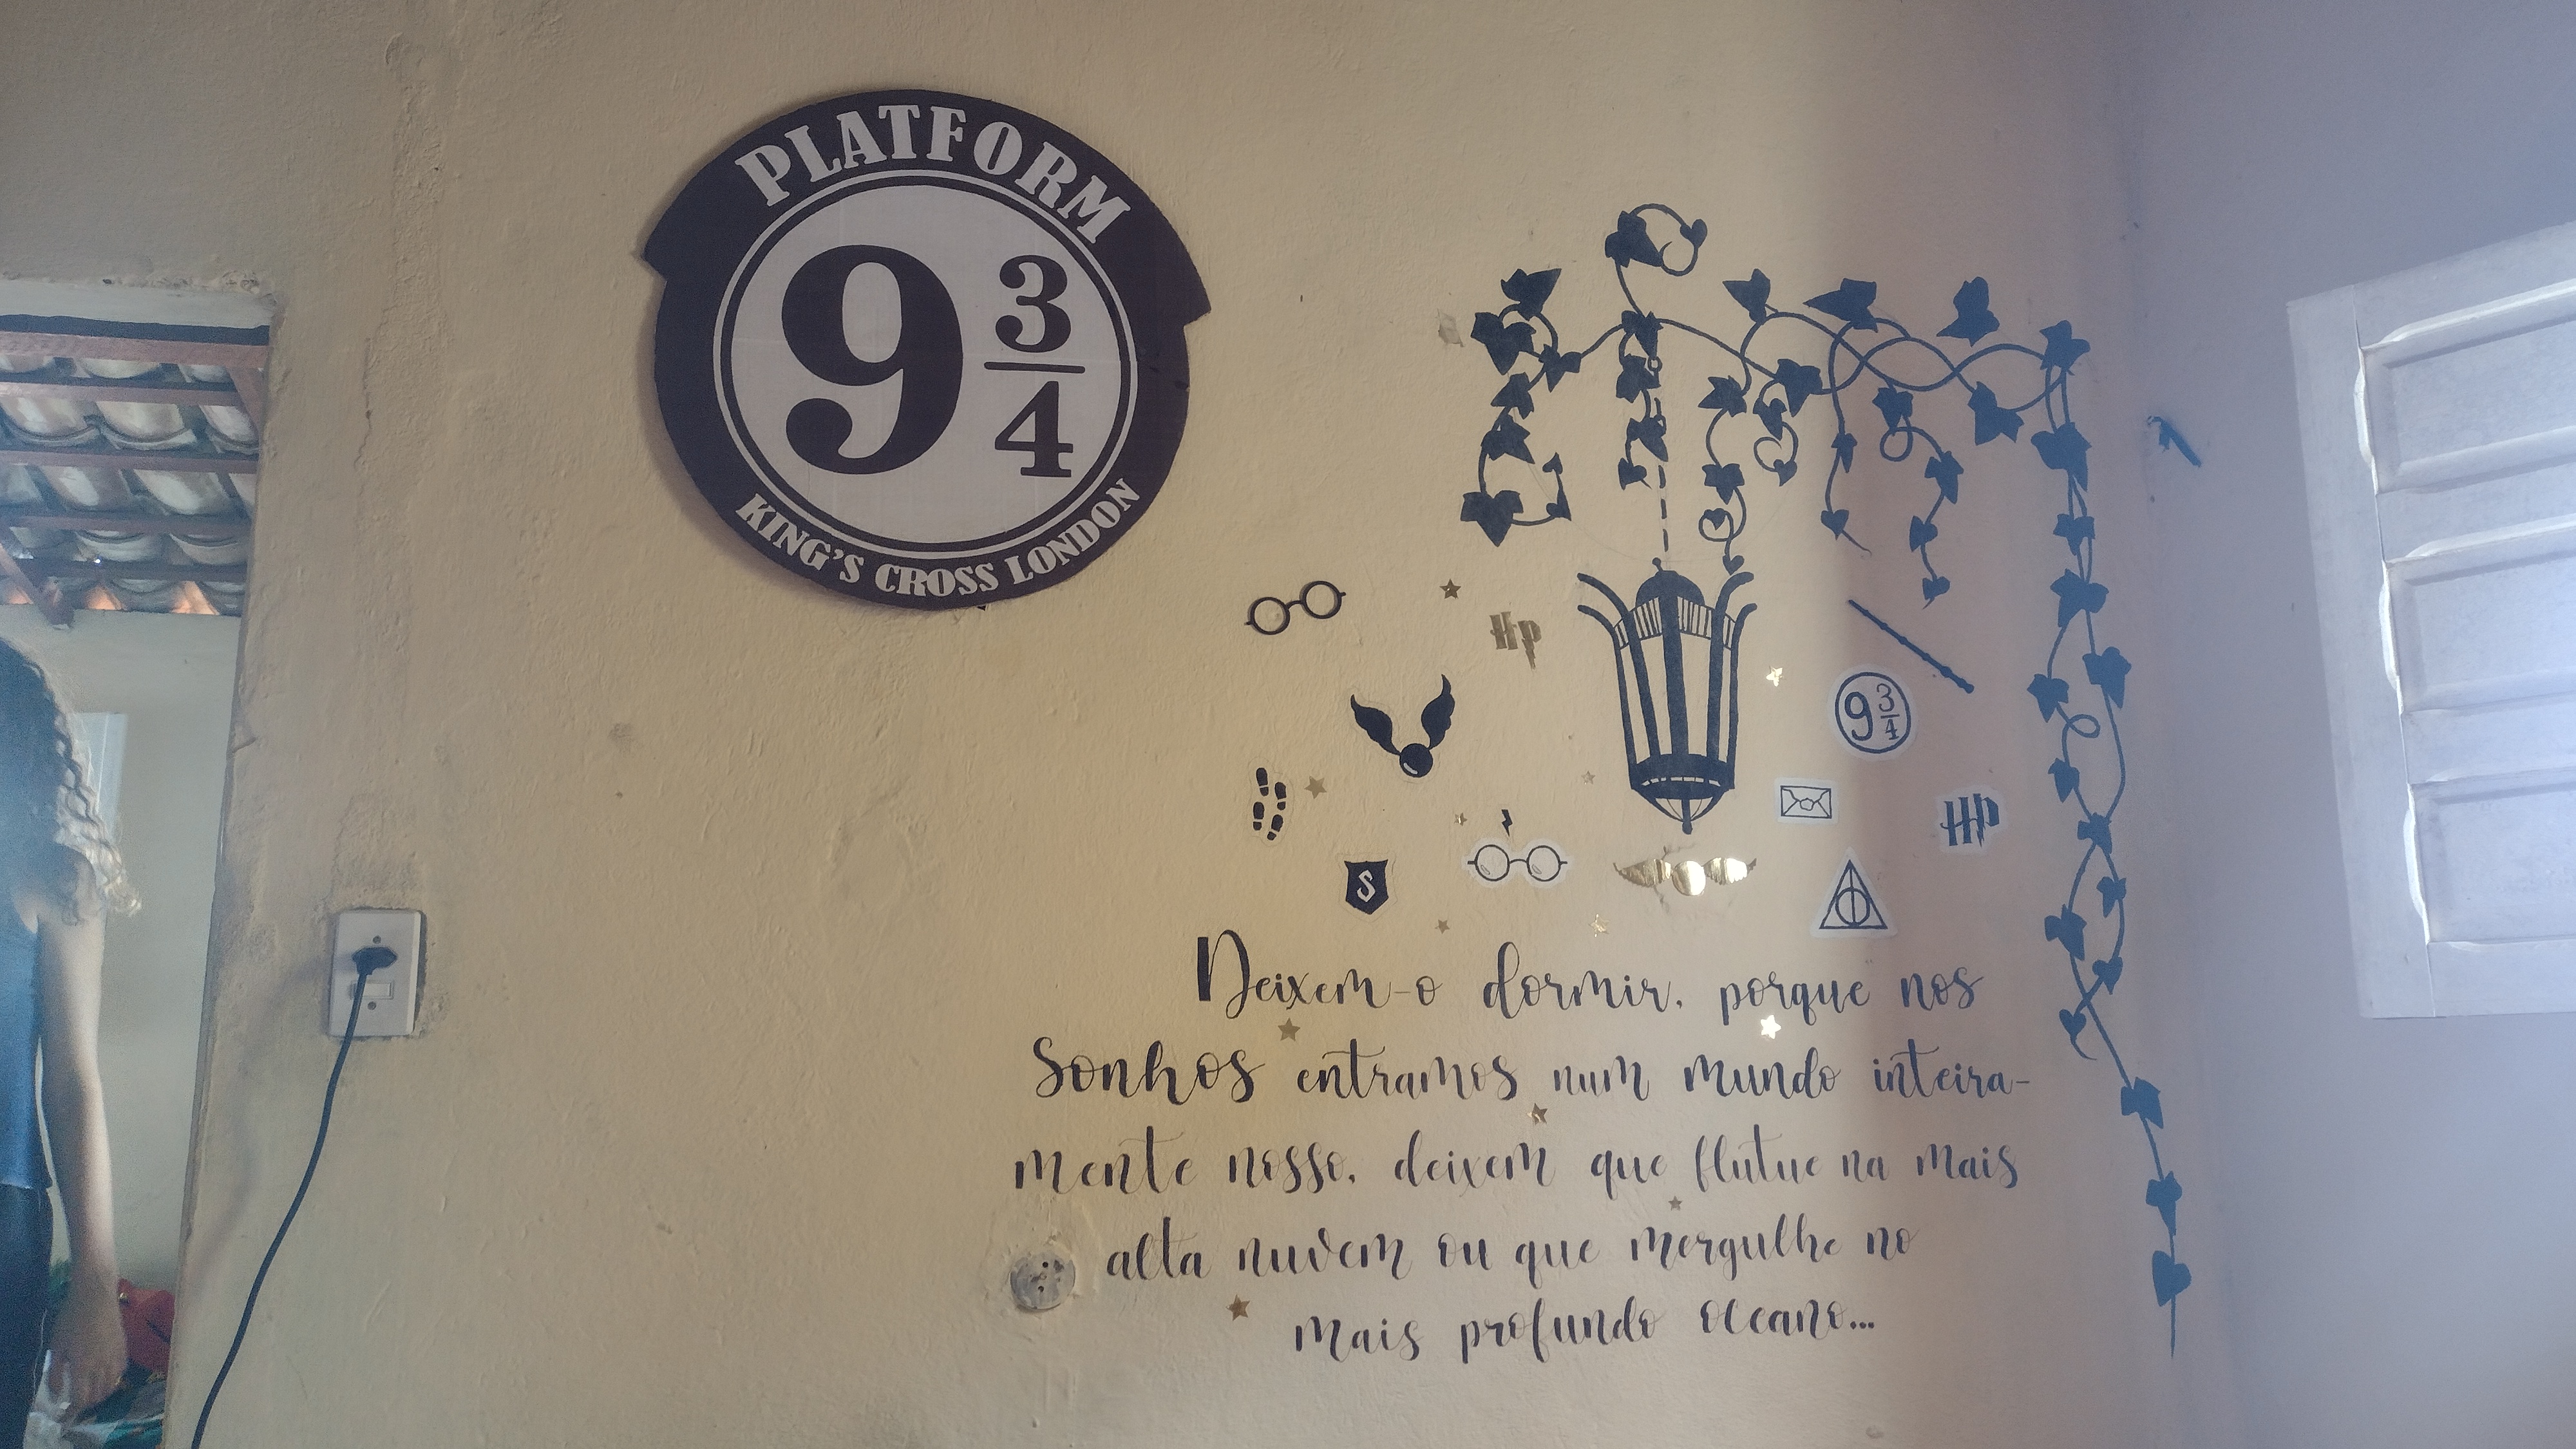 PLATFORM
9 3/4
KING'S CROSS LONDON
HP
9 3/4
HP
S
Deixem-o dormir, porque nos
Sonhos entramos num mundo inteira-
mente nosso, deixem que flutue na mais
alta nuvem ou que mergulhe no
mais profundo oceano...